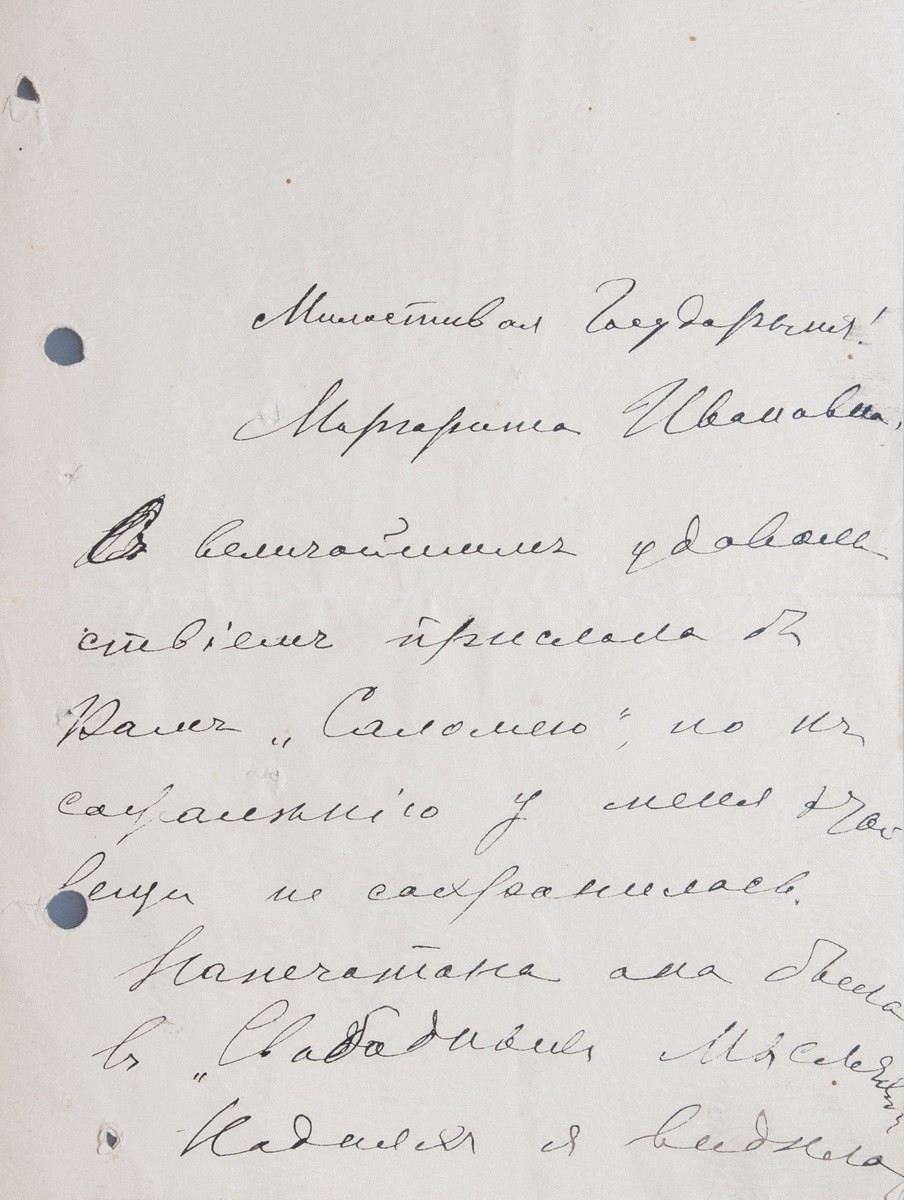 Милостивая Государыня!
Маргарита Ивановна,
Съ величайшимъ удоволь
ствіемъ прислала бъ
Вамъ „Саломею“, но къ
сожалѣнію у меня этой
вещи не сохранилось.
Напечатана она была
въ „Свободныхъ Мысляхъ“
На дняхъ я видѣла